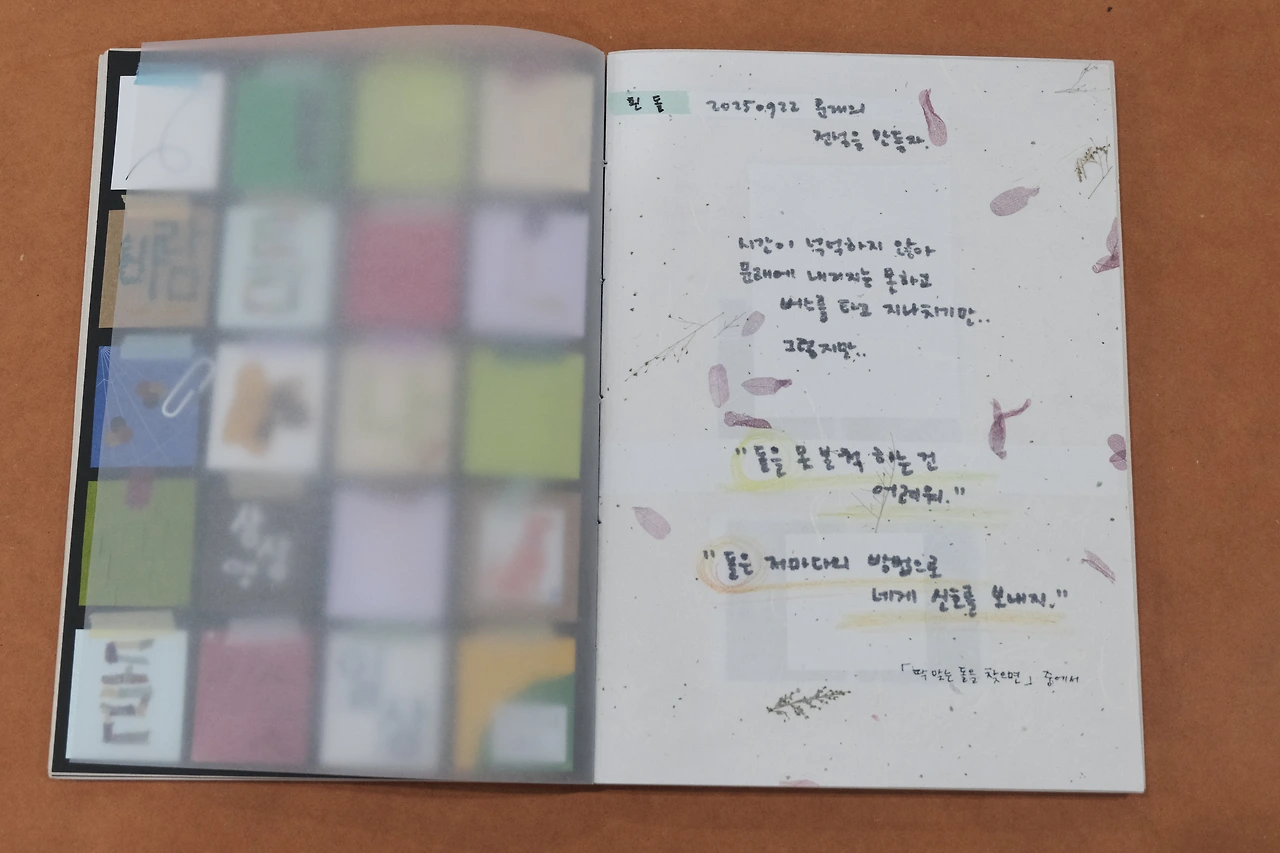 상상
흰 돌
20250922 문래의
전성을 만들자.
시간이 넉넉하지 않아
문래에 내리지는 못하고
버스를 타고 지나치기만..
그렇지만..
"돌을 못 본 척 하는 건
어려워."
"돌은 저마다의 방법으로
네게 신호를 보내지."
「딱 맞는 돌을 찾으면」 중에서